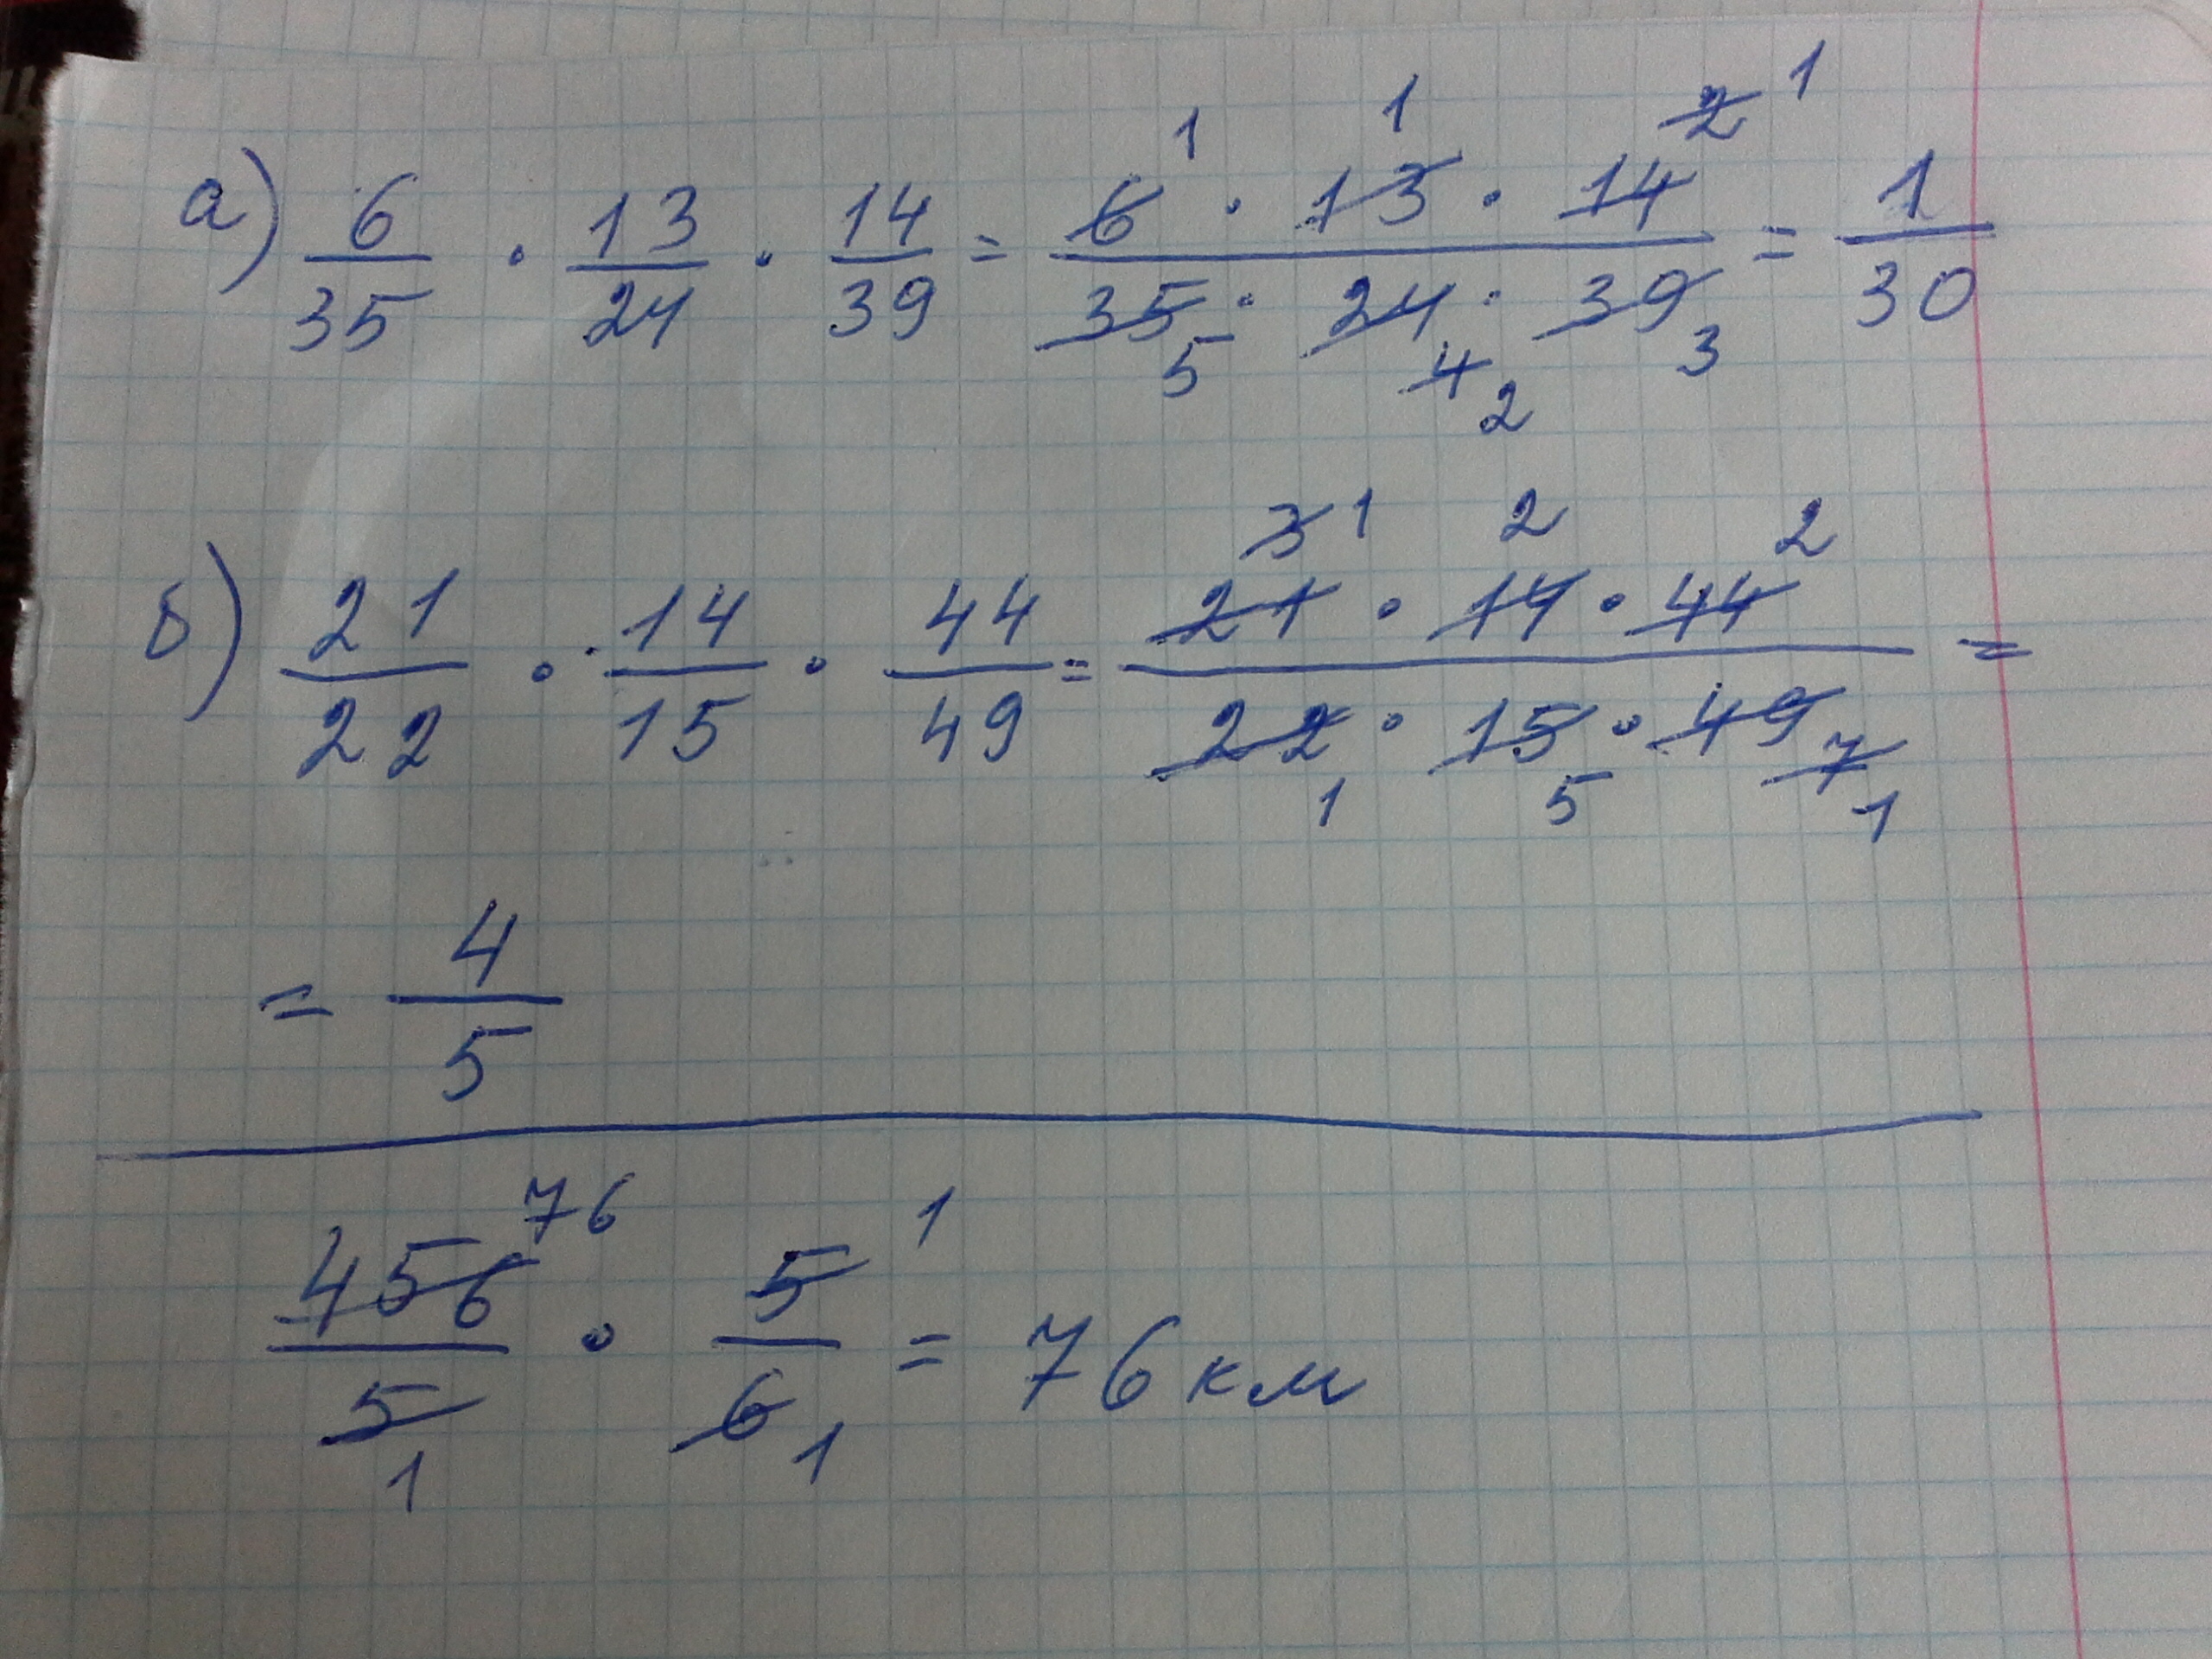 а) 6/35 · 13/24 · 14/39 = 6 · 13 · 14 / 35 · 24 · 39 = 1/30
1 1 2 1
5 4 2 3
б) 21/22 · 14/15 · 44/49 = 21 · 14 · 44 / 22 · 15 · 49 =
3 1 2 2
1 5 7 1
= 4/5
456/5 · 5/6 = 76 км
76 1
1 1